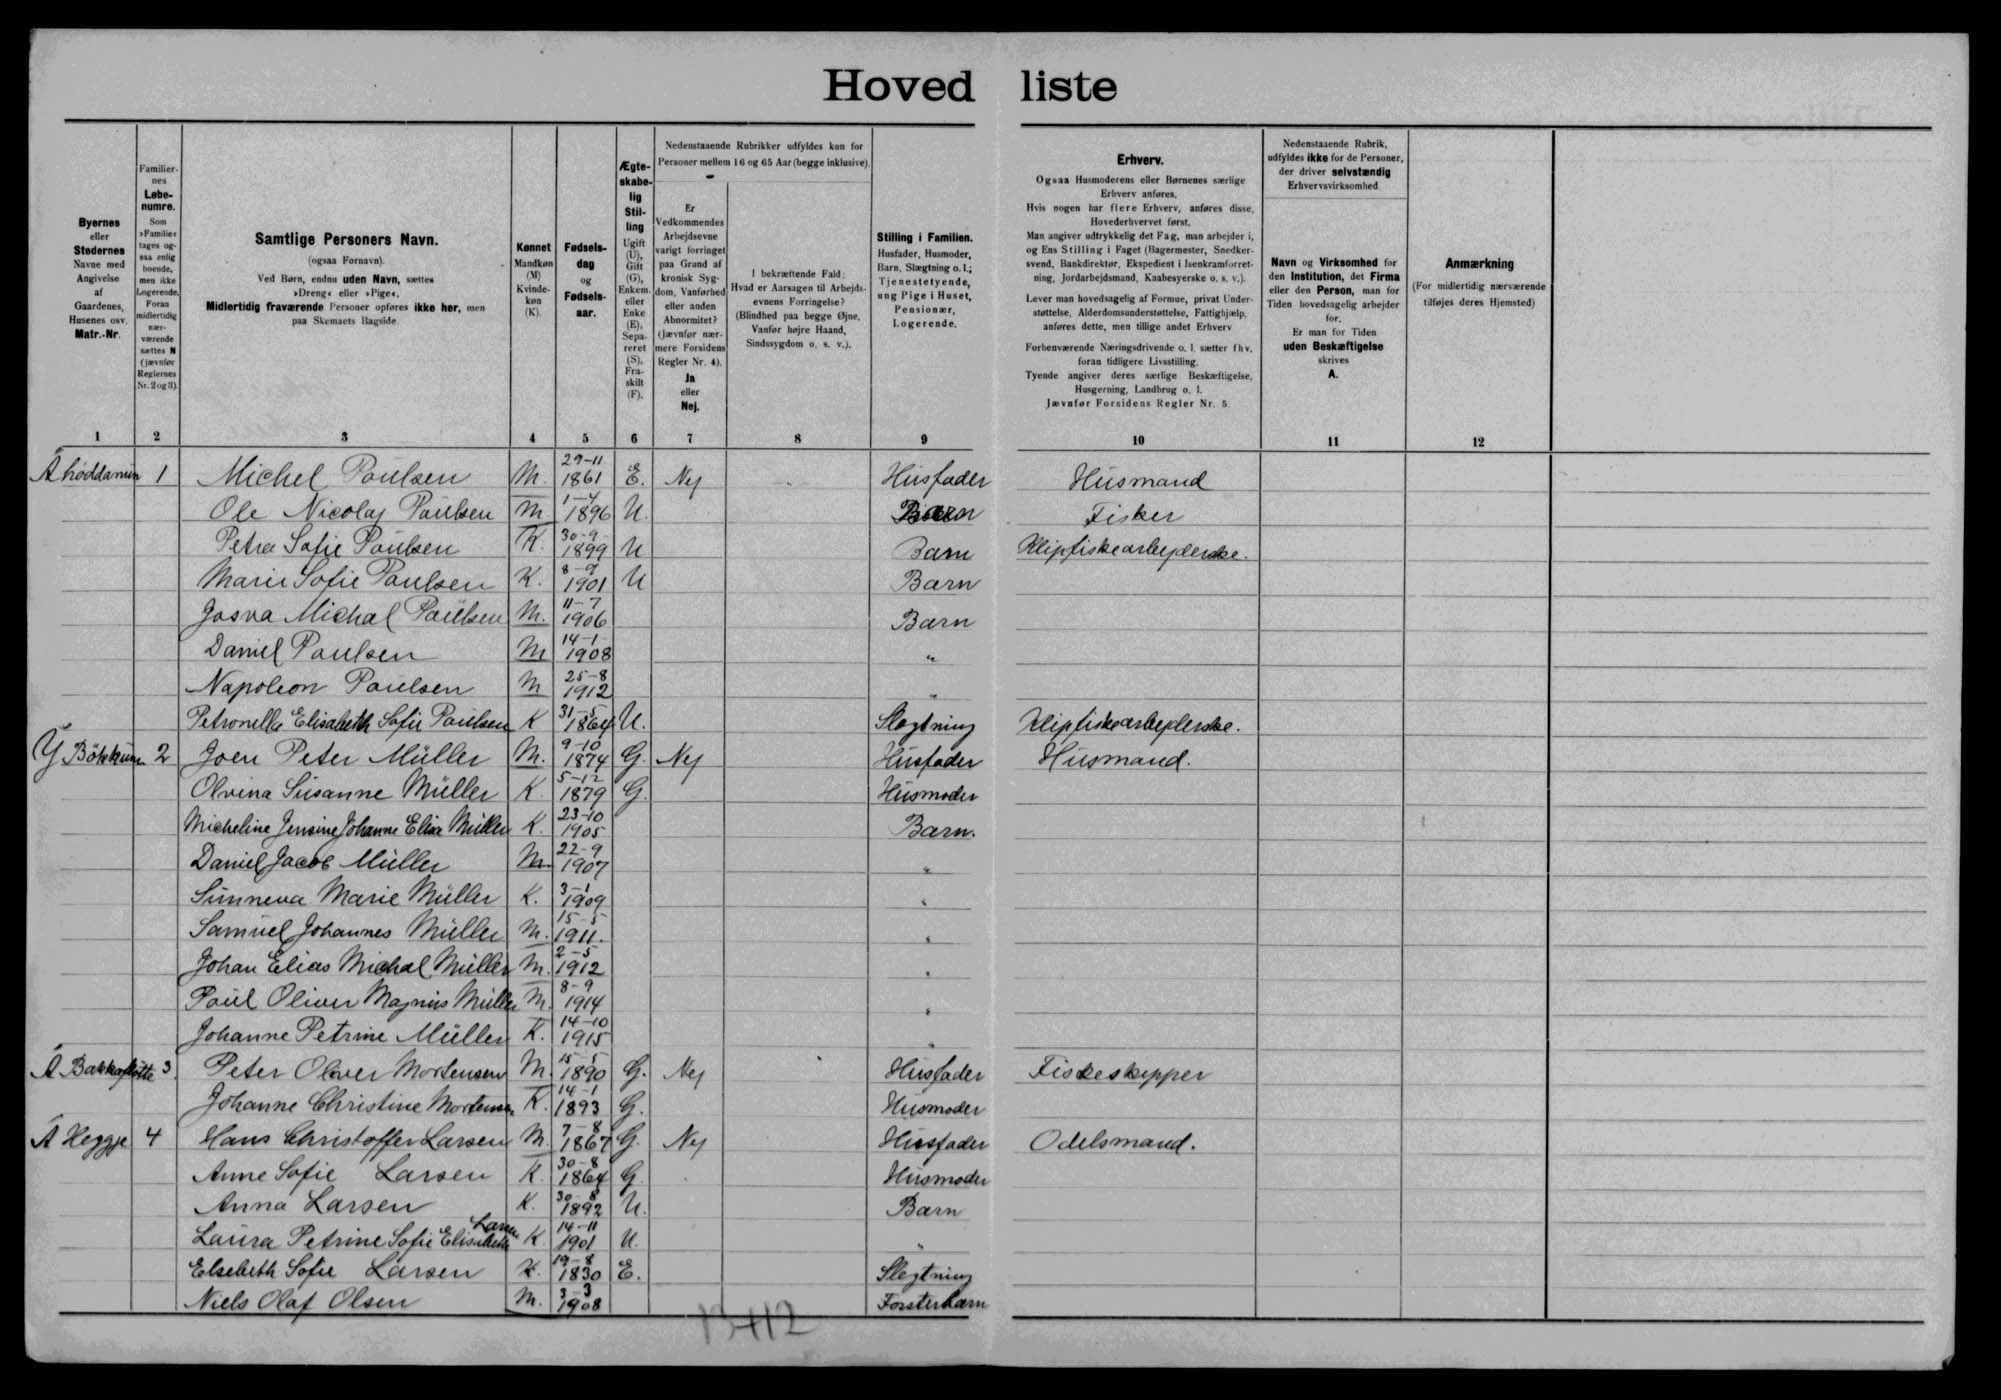 Hoved liste
Byernes
eller
Stedernes
Navne med
Angivelse
af
Gaardenes,
Husenes osv.
Matr.-Nr.
1
Familier-
nes
Løbe-
numre.
Som
»Familie«
tages og-
saa enlig
boende,
men ikke
Logerende.
Foran
midlertidig
nær-
værende
sættes N
(jævnfør
Reglernes
Nr. 2 og 3).
2
Samtlige Personers Navn.
(ogsaa Fornavn).
Ved Børn, endnu uden Navn, sættes
»Dreng« eller »Pige«.
Midlertidig fraværende Personer opføres ikke her, men
paa Skemaets Bagside.
3
Kønnet
Mandkøn
(M)
Kvinde-
køn
(K).
4
Fødsels-
dag
og
Fødsels-
aar.
5
Ægte-
skabe-
lig
Stil-
ling
Ugift
(U),
Gift
(G),
Enkem.
eller
Enke
(E),
Sepa-
reret
(S),
Fra-
skilt
(F).
6
Nedenstaaende Rubrikker udfyldes kun for
Personer mellem 16 og 65 Aar (begge inklusive).
Er
Vedkommendes
Arbejdsevne
varigt forringet
paa Grund af
kronisk Syg-
dom, Vanførhed
eller anden
Abnormitet?
(Jævnfør nær-
mere Forsidens
Regler Nr. 4).
Ja
eller
Nej.
7
I bekræftende Fald:
Hvad er Aarsagen til Arbejds-
evnens Forringelse?
(Blindhed paa begge Øjne,
Vanfør højre Haand,
Sindssygdom o. s. v.).
8
Stilling i Familien.
Husfader, Husmoder,
Barn, Slægtning o. l.;
Tjenestetyende,
ung Pige i Huset,
Pensionær,
Logerende.
9
Erhverv.
Ogsaa Husmoderens eller Børnenes særlige
Erhverv anføres.
Hvis nogen har flere Erhverv, anføres disse,
Hovederhvervet først.
Man angiver udtrykkelig det Fag, man arbejder i,
og Ens Stilling i Faget (Bagermester, Snedker-
svend, Bankdirektør, Ekspedient i Isenkramforret-
ning, Jordarbejdsmand, Kaabesyerske o. s. v.).
Lever man hovedsagelig af Formue, privat Under-
støttelse, Alderdomsunderstøttelse, Fattighjælp,
anføres dette, men tillige andet Erhverv
Forhenværende Næringsdrivende o. l. sætter fhv.
foran tidligere Livsstilling.
Tyende angiver deres særlige Beskæftigelse,
Husgerning, Landbrug o. l.
Jævnfør Forsidens Regler Nr. 5.
10
Nedenstaaende Rubrik,
udfyldes ikke for de Personer,
der driver selvstændig
Erhvervsvirksomhed.
Navn og Virksomhed for
den Institution, det Firma
eller den Person, man for
Tiden hovedsagelig arbejder
for.
Er man for Tiden
uden Beskæftigelse
skrives
A.
11
Anmærkning
(For midlertidig nærværende
tilføjes deres Hjemsted)
12
1 Michel Poulsen M. 29-11 1861 E. Nej Husfader Husmand
Ole Nicolaj Poulsen M 1-4 1896 U. Barn Fisker
Petra Sofie Poulsen K. 30-9 1899 U Barn Klipfiskearbejderske.
Marie Sofie Poulsen K. 8-9 1901 U Barn
Josva Michal Poulsen M. 11-7 1906 Barn
Daniel Poulsen M 14-1 1908 "
Napoleon Poulsen M 25-8 1912 "
Petronella Elisabeth Sofie Poulsen K 31-5 1864 U. Slegtning Klipfiskearbejderske.
Y Bökkum 2 Joen Peter Müller M. 9-10 1874 G. Nej Husfader Husmand.
Olvina Susanne Müller K. 5-12 1879 G. Husmoder
Micheline Jensine Johanne Elise Müller K. 23-10 1905 Barn.
Daniel Jacob Müller M. 22-9 1907 "
Sunneva Marie Müller K. 3-1 1909 "
Samuel Johannes Müller M. 15-5 1911. "
Johan Elias Michal Müller M. 2-5 1912 "
Poul Oliver Magnus Müller M. 8-9 1914 "
Johanne Petrine Müller K. 14-10 1915 "
3 Peter Oliver Mortensen M. 15-5 1890 G. Nej Husfader Fiskeskipper
Johanne Christine Mortensen K. 14-1 1893 G. Husmoder
Á Heggje 4 Hans Christoffer Larsen M. 7-8 1867 G. Nej Husfader Odelsmand.
Anne Sofie Larsen K. 30-8 1864 G. Husmoder
Anna Larsen K. 30-8 1892 U. Barn
Laura Petrine Sofie Elisabeth Larsen K. 14-11 1901 U. "
Elsebeth Sofie Larsen K. 19-8 1830 E. Slegtning
Niels Olaf Olsen M. 3-3 1908 Forsterbarn
13+12